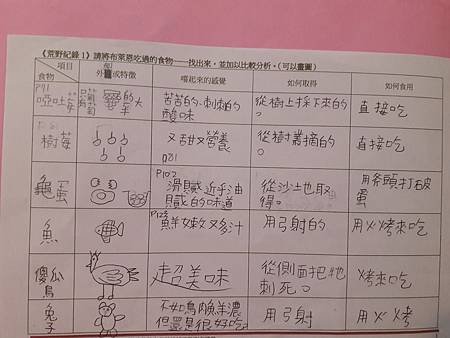 《荒野紀錄1》請將布萊恩吃過的食物——找出來,並加以比較分析。(可以畫圖)
項目
食物
外型或特徵
嚐起來的感覺
如何取得
如何食用
P71
啞吐莓
葡萄
的大
苦苦的、刺刺的
酸味
從樹上採下來的
。
直接吃
樹莓
又甜又營養
P81
從樹叢摘的
。
直接吃
龜蛋
P102
滑膩近乎油
膩的味道
從沙土也取
得。
用斧頭打破
蛋
魚
P123
鮮嫩又多汁
用弓射的
用火烤來吃
傻瓜
鳥
超美味
從側面把牠
刺死。
烤來吃
兔子
不如鳥肉鮮濃
但還是很好吃
用弓射
用火烤